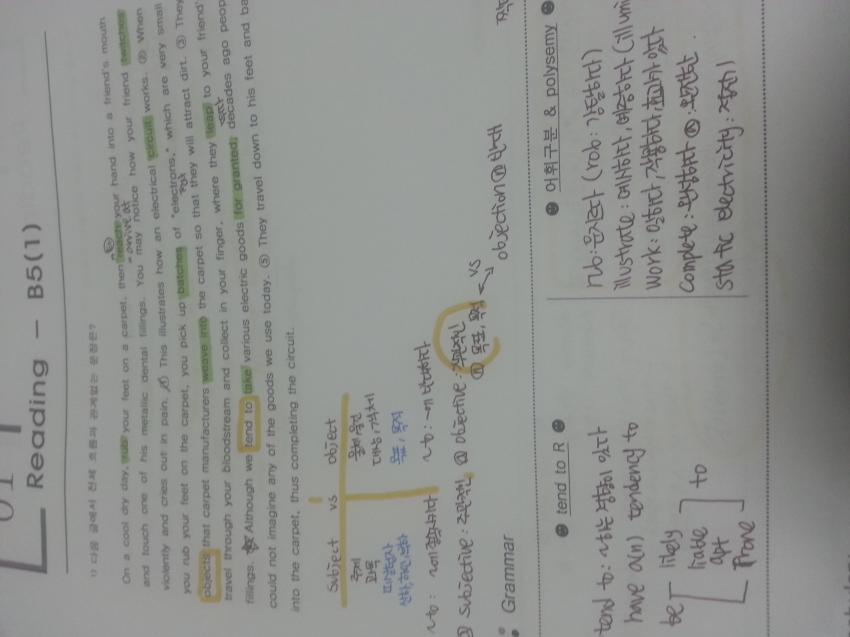 Reading – B5(1)
1) 다음 글에서 전체 흐름과 관계없는 문장은?
On a cool dry day, rub your feet on a carpet, then reach your hand into a friend's mouth
and touch one of his metallic dental fillings. You may notice how your friend twitches
violently and cries out in pain. ① This illustrates how an electrical circuit works. ② When
you rub your feet on the carpet, you pick up batches of "electrons," which are very small
objects that carpet manufacturers weave into the carpet so that they will attract dirt. ③ They
travel through your bloodstream and collect in your finger, where they leap to your friend'
fillings. ④ Although we tend to take various electric goods for granted, decades ago peop
could not imagine any of the goods we use today. ⑤ They travel down to his feet and ba
into the carpet, thus completing the circuit.
= arrive at
Subject vs object
주제 물체, 물건
과목 대상, 객체
피실험자 목표, 목적
to: ~에 반대하다
② Subjective: 주관적인 ⓐ objective: 객관적인
ⓝ 목표, 목적 vs objection ⓝ 반대
Grammar
tend to R
tend to: ~하는 경향이 있다
have a(n) tendency to
be likely
liable
apt
prone
to
어휘구분 & polysemy
rub: 문지르다 (rob: 강탈하다)
illustrate: 예시하다, 예증하다 (illumi
work: 일하다, 작용하다, 효과가 있다
complete: 완성하다 ⓐ: 완전한.
static electricity: 정전기